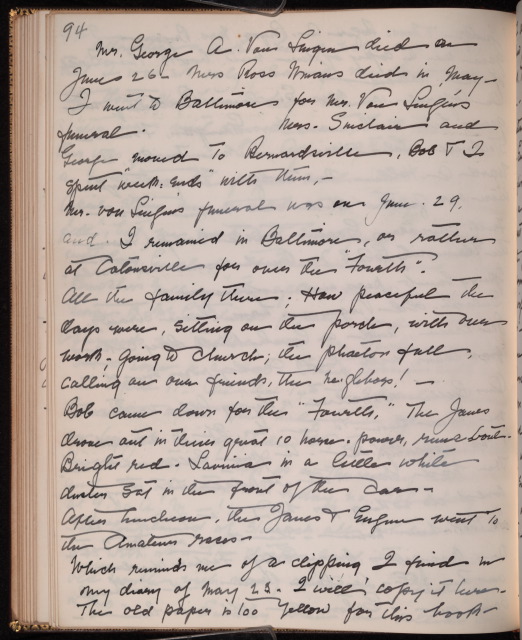 94
Mr. George A. Von Lingen died on
June 26- Mrs Ross Winans died in May-
I went to Baltimore for Mr. Von Lingen's
funeral. Mrs. Sinclair and
George moved to Bernardsville, Bob & I
spent "week-ends" with them,-
Mr. von Lingen's funeral was on June. 29.
and. I remained in Baltimore, or rather
at Catonsville for over the "Fourth".
All the family there; How peaceful the
days were, sitting on the porch, with our
work- going to church; the phaeton full,
calling on our friends, the neighbors! -
Bob came down for the "Fourth," The Janes
drove out in their great 10 horse-power,
Bright red- Lavinia in a little white
duster sat in the front of the car-
After luncheon, the Janes & Eugene went to
the Amateur races-
Which reminds me of a clipping I find in
my diary of May 23- I will copy it here-
The old paper is too yellow for this book-